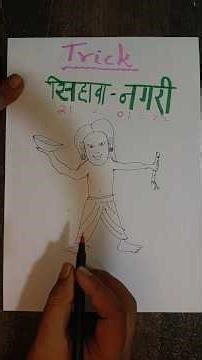 Trick
सिहावा-नगरी